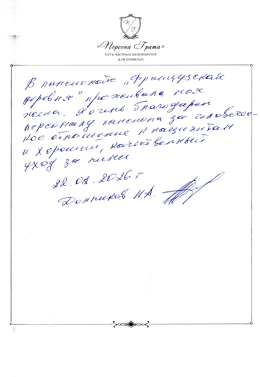 «Персона Грата»
Сеть частных пансионатов
для пожилых
В пансионате „Французская
деревня" проживала моя
жена. Я очень благодарен
персоналу пансиона за человечес-
кое отношение к пациентам
и хороший, качественный
уход за ними
22.02.2026г
Донников Н.А.